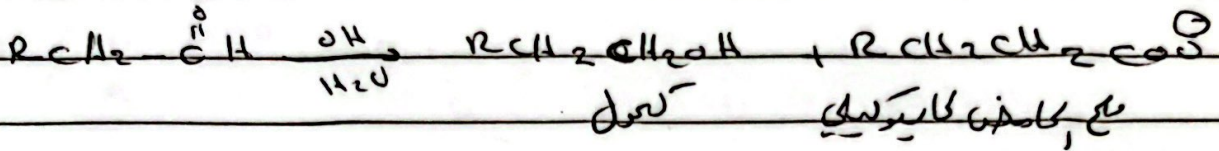 O
RCH₂-C̈H OH/H₂O → RCH₂CH₂OH + RCH₂CH₂COO⊖
كحول ملح الحامض الكاربوكسيلي